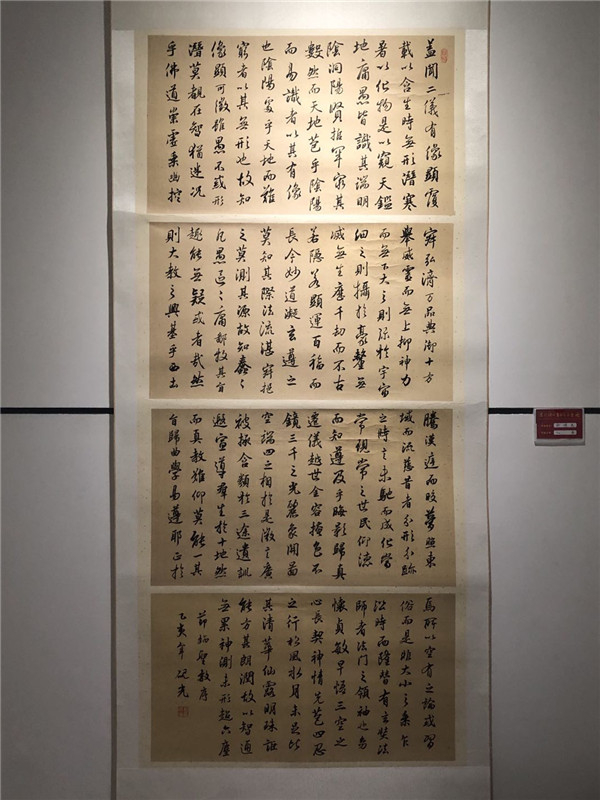 蓋聞二儀有像顯覆
載以含生時無形潛寒
暑以化物是以窺天鑑
地庸愚皆識其端明
陰洞陽賢哲罕窮其
數然而天地苞乎陰陽
而易識者以其有像
也陰陽處乎天地而難
窮者以其無形也故知
像顯可徵雖愚不惑形
潛莫覩在智猶迷況
乎佛道崇虛乘幽控
寂弘濟万品典御十方
舉威靈而無上抑神力
而無下大之則彌於宇宙
細之則攝於豪釐無
滅無生歷千劫而不古
若隱若顯運百福而
長今妙道凝玄遵之
莫知其際法流湛寂挹
之莫測其源故知蠢々
凡愚區々庸鄙投其旨
趣能無疑或者哉然
則大教之興基乎西土
騰漢庭而皎夢照東
域而流慈昔者分形分跡
之時言未馳而成化當
常現常之世民仰德
而知遵及乎晦影歸真
遷儀越世金容掩色不
鏡三千之光麗象開圖
空端四之相於是微言廣
被拯含類於三途遺訓
遐宣導群生於十地然
而真教難仰莫能一其
旨歸曲學易遵邪正於
焉以空有之論或習
俗而是非大小之乘乍
沿時而隆替有玄奘法
師者法門之領袖也幼
懷貞敏早悟三空之
心長契神情先苞四忍
之行松風水月未足比
其清華仙露明珠詎
能方其朗潤故以智通
無累神測未形超六塵
節抄聖教序
乙亥年光